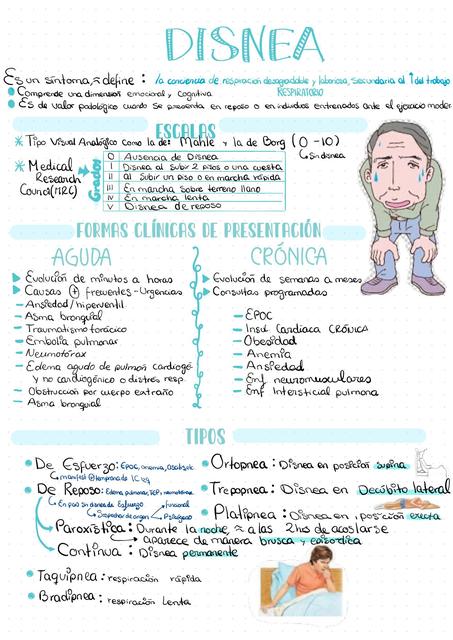 DISNEA
Es un síntoma, se define: la conciencia de respiración desagradable y laboriosa, secundaria al ↑ del trabajo
RESPIRATORIO
Comprende una dimensión emocional y cognitiva
Es de valor patológico cuando se presenta en reposo o en individuos entrenados ante el ejercicio moder
ESCALAS
* Tipo Visual Analógico como la de: Mahle y la de Borg (0-10)
↳ Sin disnea
* Medical
Research
Council(MRC)
Grados
0 Ausencia de Disnea
I Disnea al subir 2 pisos o una cuesta
II al subir un piso o en marcha rápida
III En marcha sobre terreno llano
IV En marcha lenta
V Disnea de reposo
FORMAS CLÍNICAS DE PRESENTACIÓN
AGUDA
Evolución de minutos a horas
Causas + frecuentes-Urgencias
- Ansiedad/hiperventil.
- Asma bronquial
- Traumatismo torácico
- Embolia pulmonar
- Neumotórax
- Edema agudo de pulmón cardiogé
y no cardiogénico o distrés resp.
- Obstrucción por cuerpo extraño
- Asma bronquial
CRÓNICA
Evolución de semanas a meses
Consultas programadas
- EPOC
- Insuf. Cardiaca CRÓNICA
- Obesidad
- Anemia
- Ansiedad
- Enf neuromusculares
- Enf Intersticial pulmona
TIPOS
De Esfuerzo: EPOC, anemia,
↳ manifest temprana de IC izq
De Reposo: Edema pulmonar, TEP, neumotórax
En px sin disnea de Esfuerzo
↳ Sospechar de origen
funcional
Psicógeno
Paroxística: Durante la noche, ≈ a las 2hs de acostarse
↳ aparece de manera brusca y episódica
Continua: Disnea permanente
Taquipnea: respiración rápida
Bradipnea: respiración lenta
Ortopnea: Disnea en posición supina
Trepopnea: Disnea en Decúbito lateral
Platipnea: Disnea en posición erecta